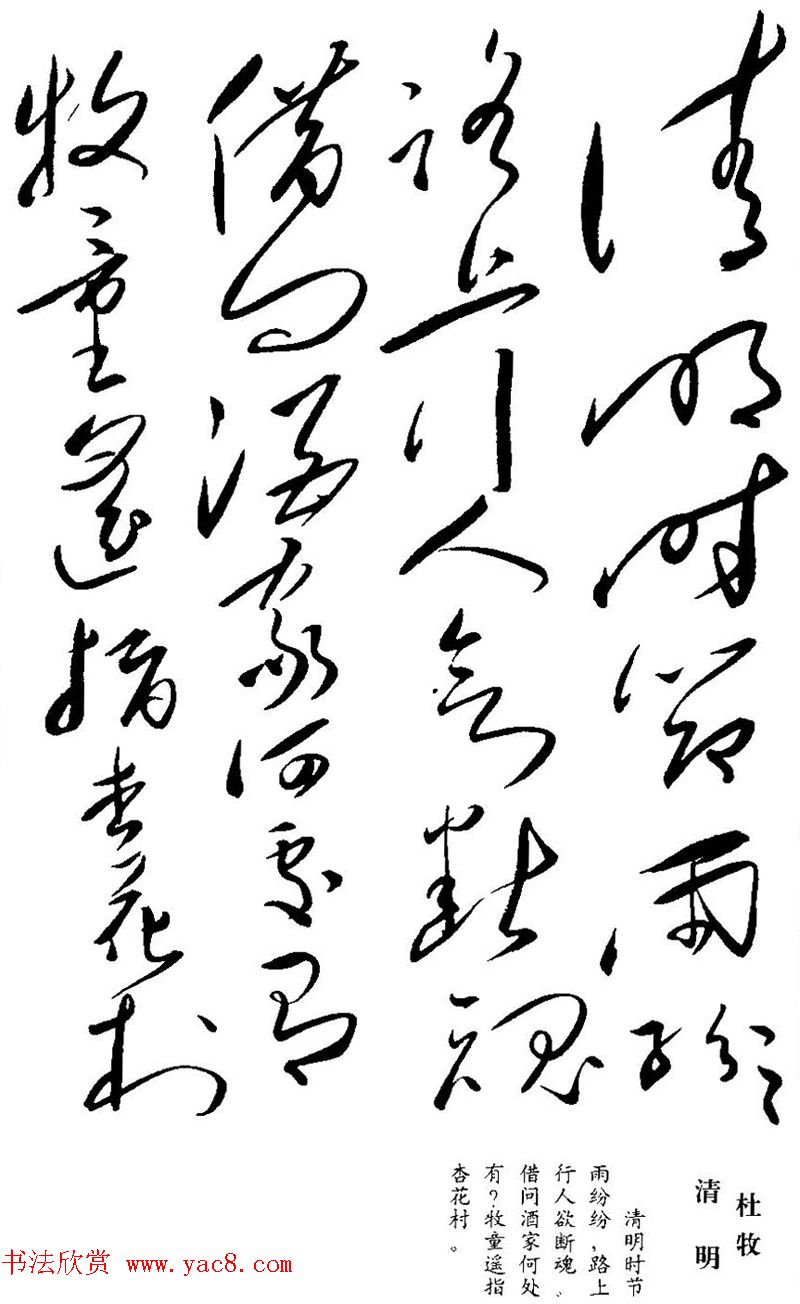 清明时节雨纷纷
路上行人欲断魂
借问酒家何处有
牧童遥指杏花村
杜牧
清明
清明时节
雨纷纷,路上
行人欲断魂。
借问酒家何处
有?牧童遥指
杏花村。
书法欣赏 www.yac8.com